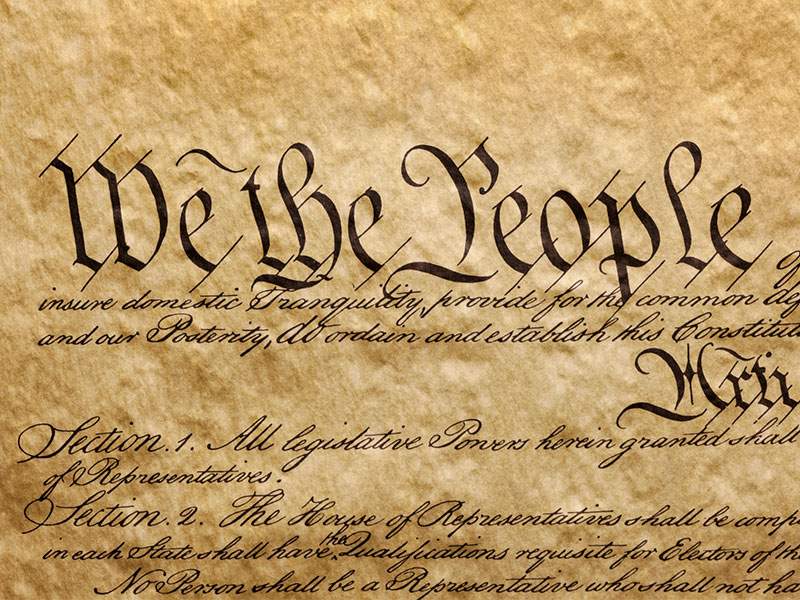 We the People of
insure domestic Tranquility, provide for the common def
and our Posterity, do ordain and establish this Constitut
Arti
Section. 1. All legislative Powers herein granted shall
of Representatives.
Section. 2. The House of Representatives shall be comp
in each State shall have the Qualifications requisite for Electors of th
No Person shall be a Representative who shall not ha